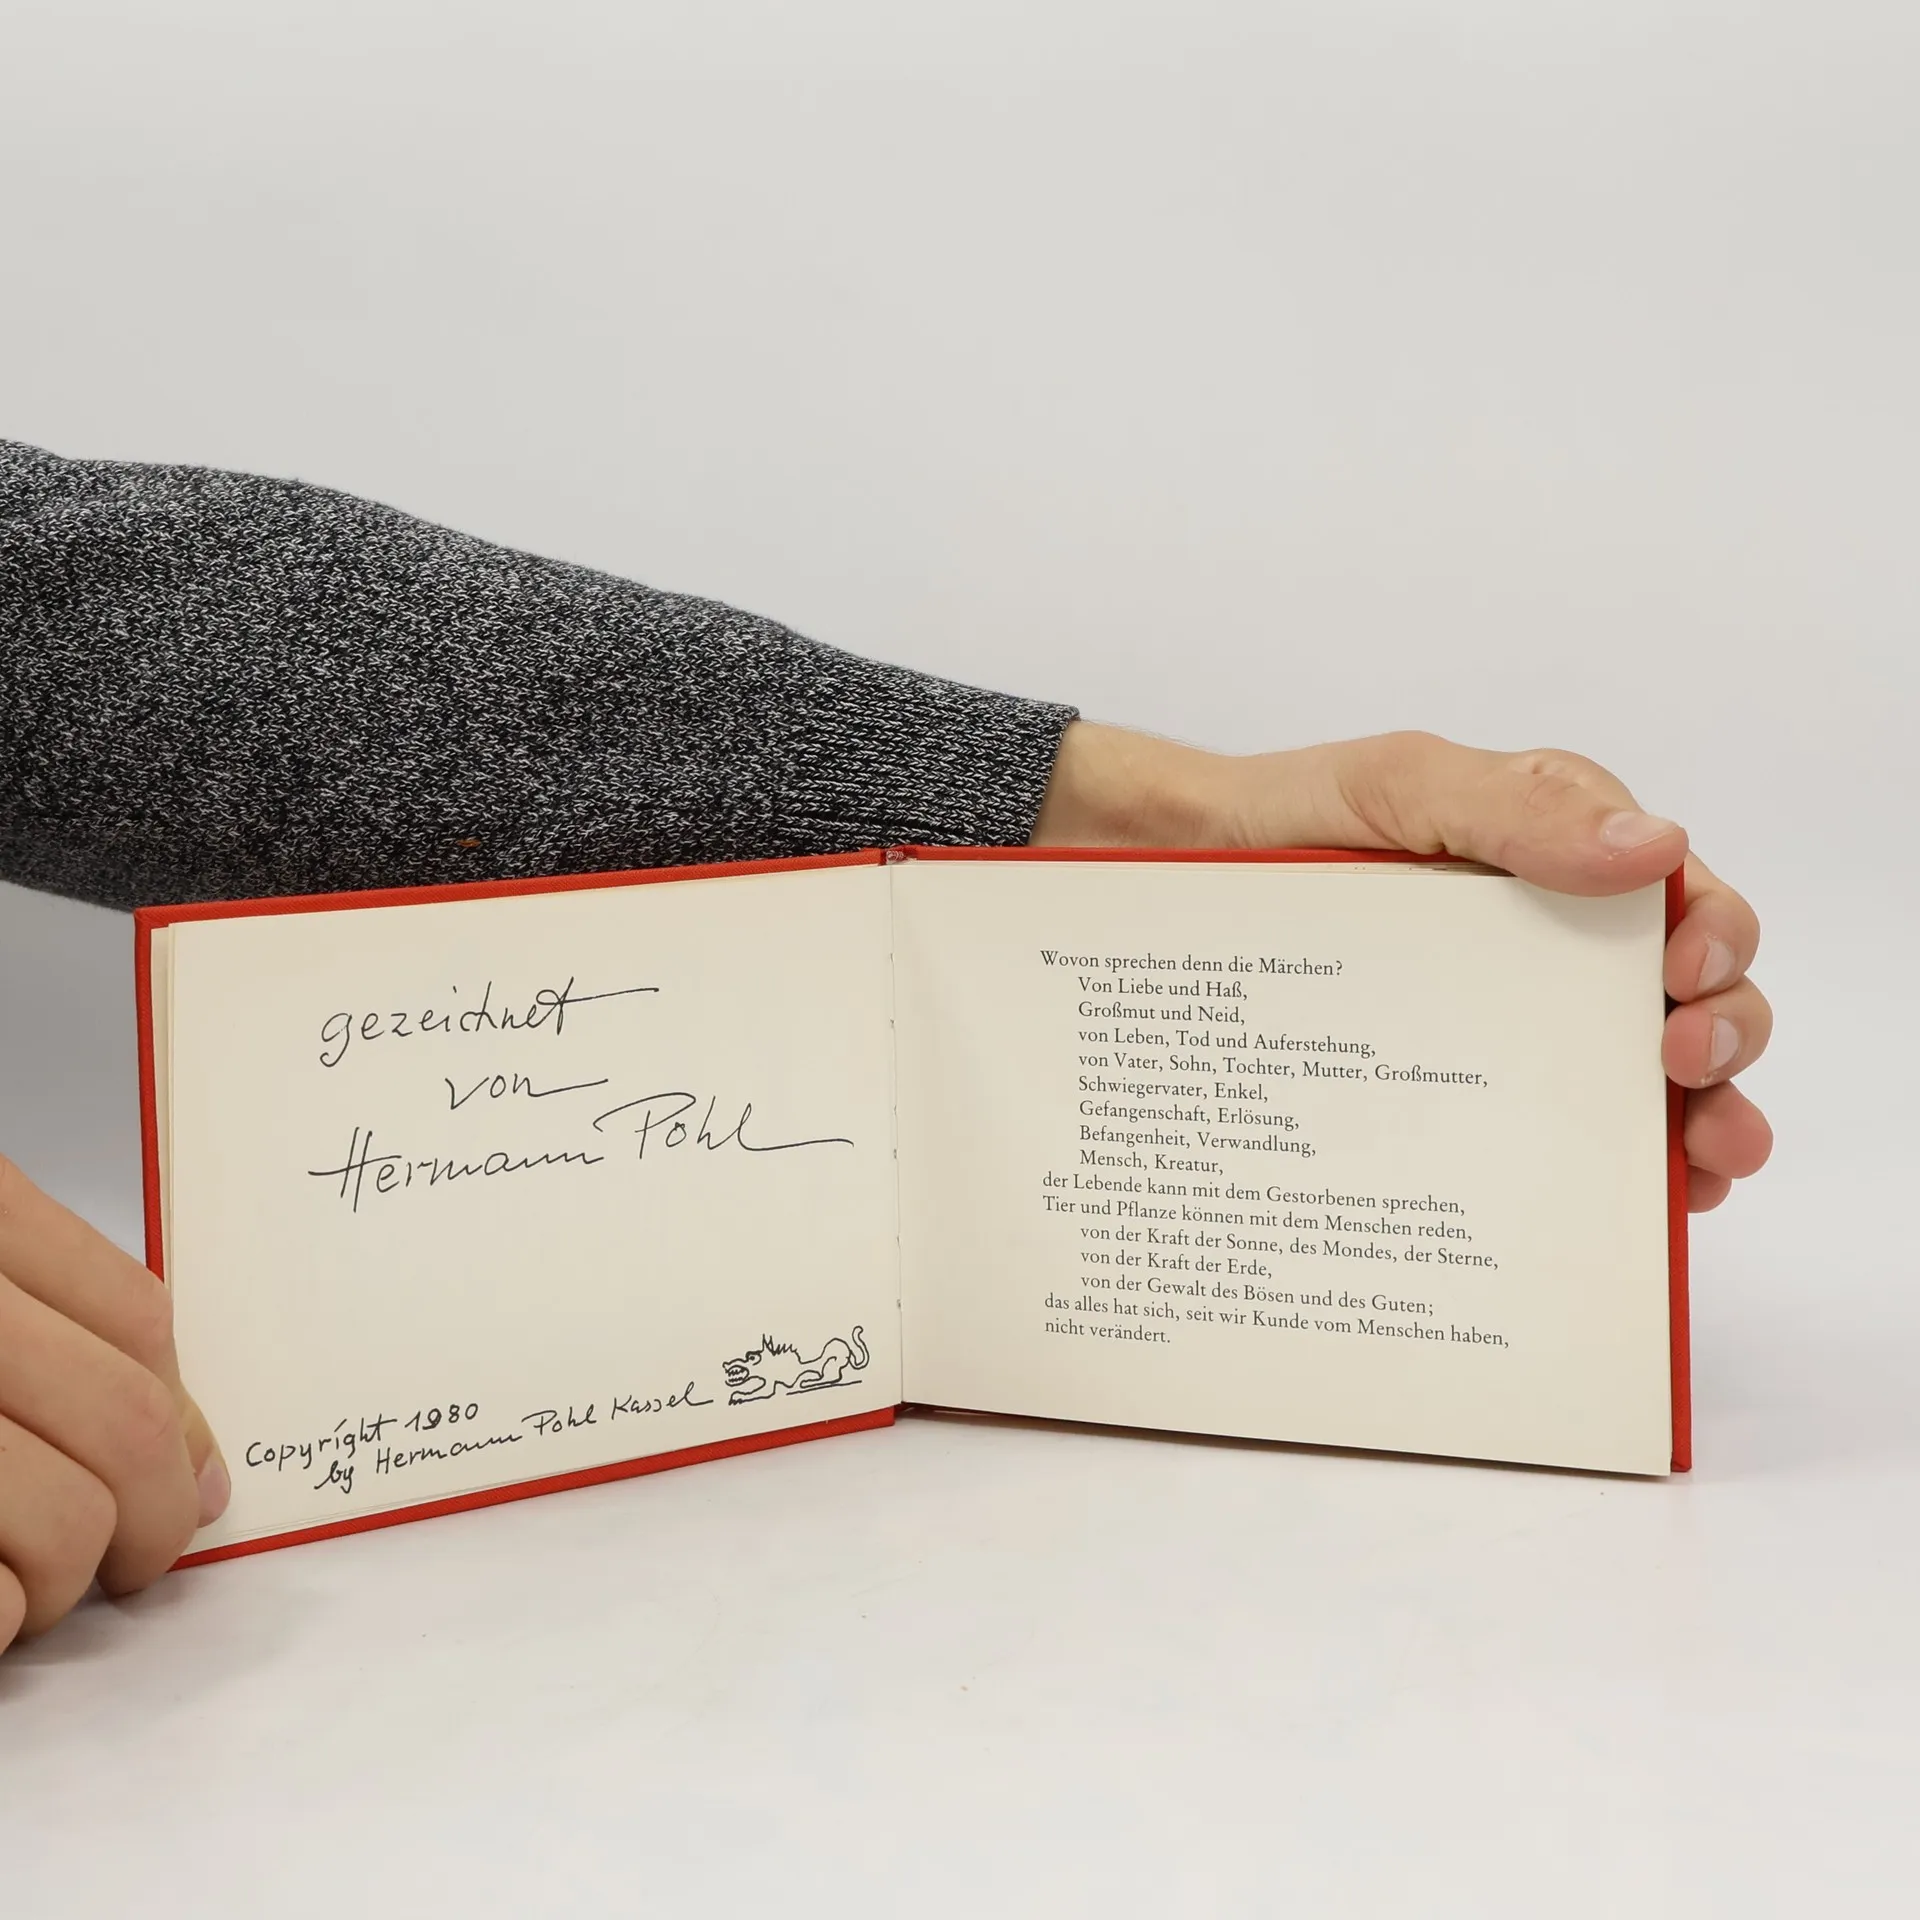 gezeichnet
von
Hermann Pohl
Copyright 1980
by Hermann Pohl Kassel
Wovon sprechen denn die Märchen?
Von Liebe und Haß,
Großmut und Neid,
von Leben, Tod und Auferstehung,
von Vater, Sohn, Tochter, Mutter, Großmutter,
Schwiegervater, Enkel,
Gefangenschaft, Erlösung,
Befangenheit, Verwandlung,
Mensch, Kreatur,
der Lebende kann mit dem Gestorbenen sprechen,
Tier und Pflanze können mit dem Menschen reden,
von der Kraft der Sonne, des Mondes, der Sterne,
von der Kraft der Erde,
von der Gewalt des Bösen und des Guten;
das alles hat sich, seit wir Kunde vom Menschen haben,
nicht verändert.